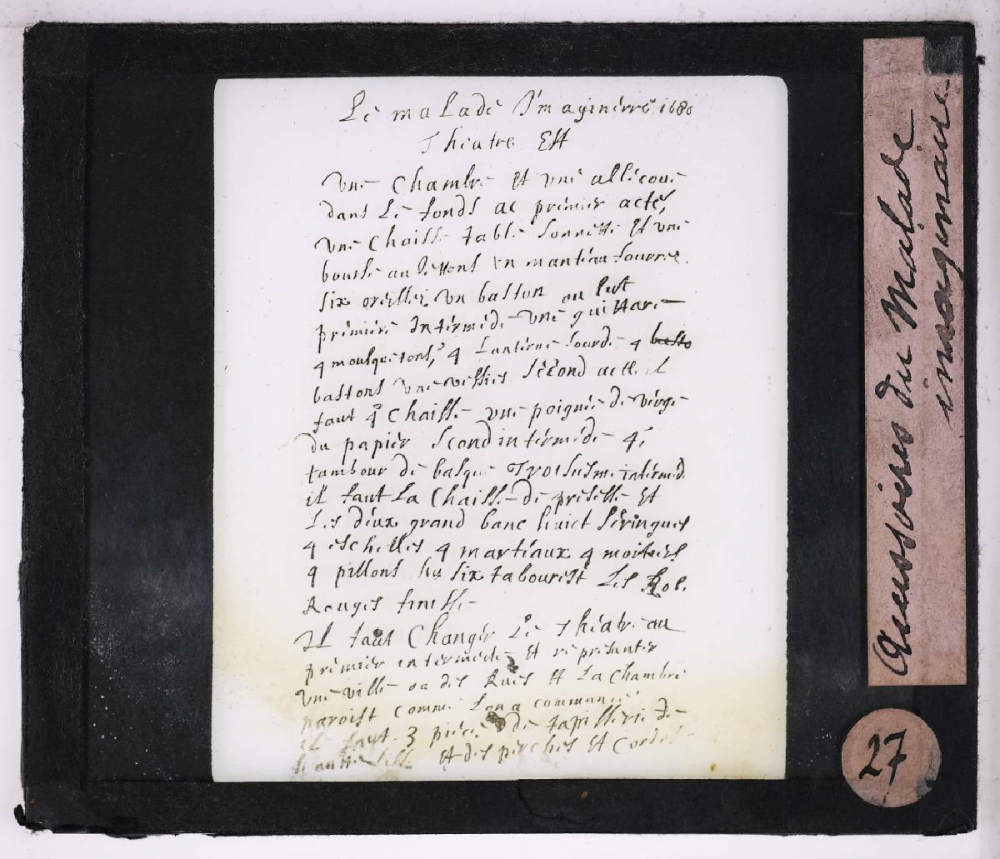 Le malade Imaginerre 1680
Theatre Est
une Chambre Et une allecove
dans Le fonds ac premier acte,
une Chaisse table sonnette Et une
bourse au Jettons un manteau fourree.
six oreillez un baston ou lut
premiere Intermede une guittare
4 mousquetons, 4 Lanterne sourde 4 basto
bastons une vessies second acte il
faut 4 Chaisse une poignee de verge
du papier second intermede 4,
tambour de basque Troisiesme intermed
il faut La Chaisse de presesse Et
Les deux grand banc huict seringues
4 eschelles 4 martiaux 4 moities
4 pillons six tabourest Les Robe
Rouges
Il faut Changer Le Theatre au
premier intermede Et representer
une ville ou des Rues Et La Chambre
paroist comme Lon a commancé
il faut 3 pieces de tapisserie de
haultelisse Et des perches Et Cordes
Accessoires du Malade
imaginaire
27